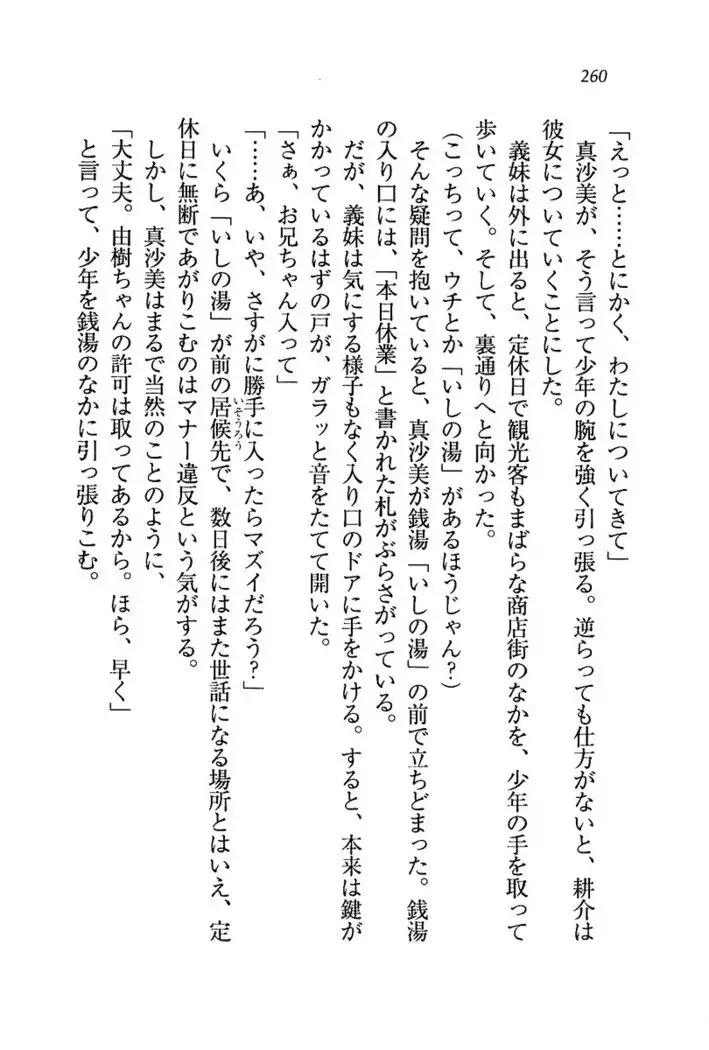 260
「えっと……とにかく、わたしについてきて」
真沙美が、そう言って少年の腕を強く引っ張る。逆らっても仕方がないと、耕介は
彼女についていくことにした。
義妹は外に出ると、定休日で観光客もまばらな商店街のなかを、少年の手を取って
歩いていく。そして、裏通りへと向かった。
(こっちって、ウチとか「いしの湯」があるほうじゃん?)
そんな疑問を抱いていると、真沙美が銭湯「いしの湯」の前で立ちどまった。銭湯
の入り口には、「本日休業」と書かれた札がぶらさがっている。
だが、義妹は気にする様子もなく入り口のドアに手をかける。すると、本来は鍵が
かかっているはずの戸が、ガラッと音をたてて開いた。
「さぁ、お兄ちゃん入って」
「……あ、いや、さすがに勝手に入ったらマズイだろう?」
いくら「いしの湯」が前の居候先で、数日後にはまた世話になる場所とはいえ、定
いそうろう
休日に無断であがりこむのはマナー違反という気がする。
しかし、真沙美はまるで当然のことのように、
「大丈夫。由樹ちゃんの許可は取ってあるから。ほら、早く」
と言って、少年を銭湯のなかに引っ張りこむ。